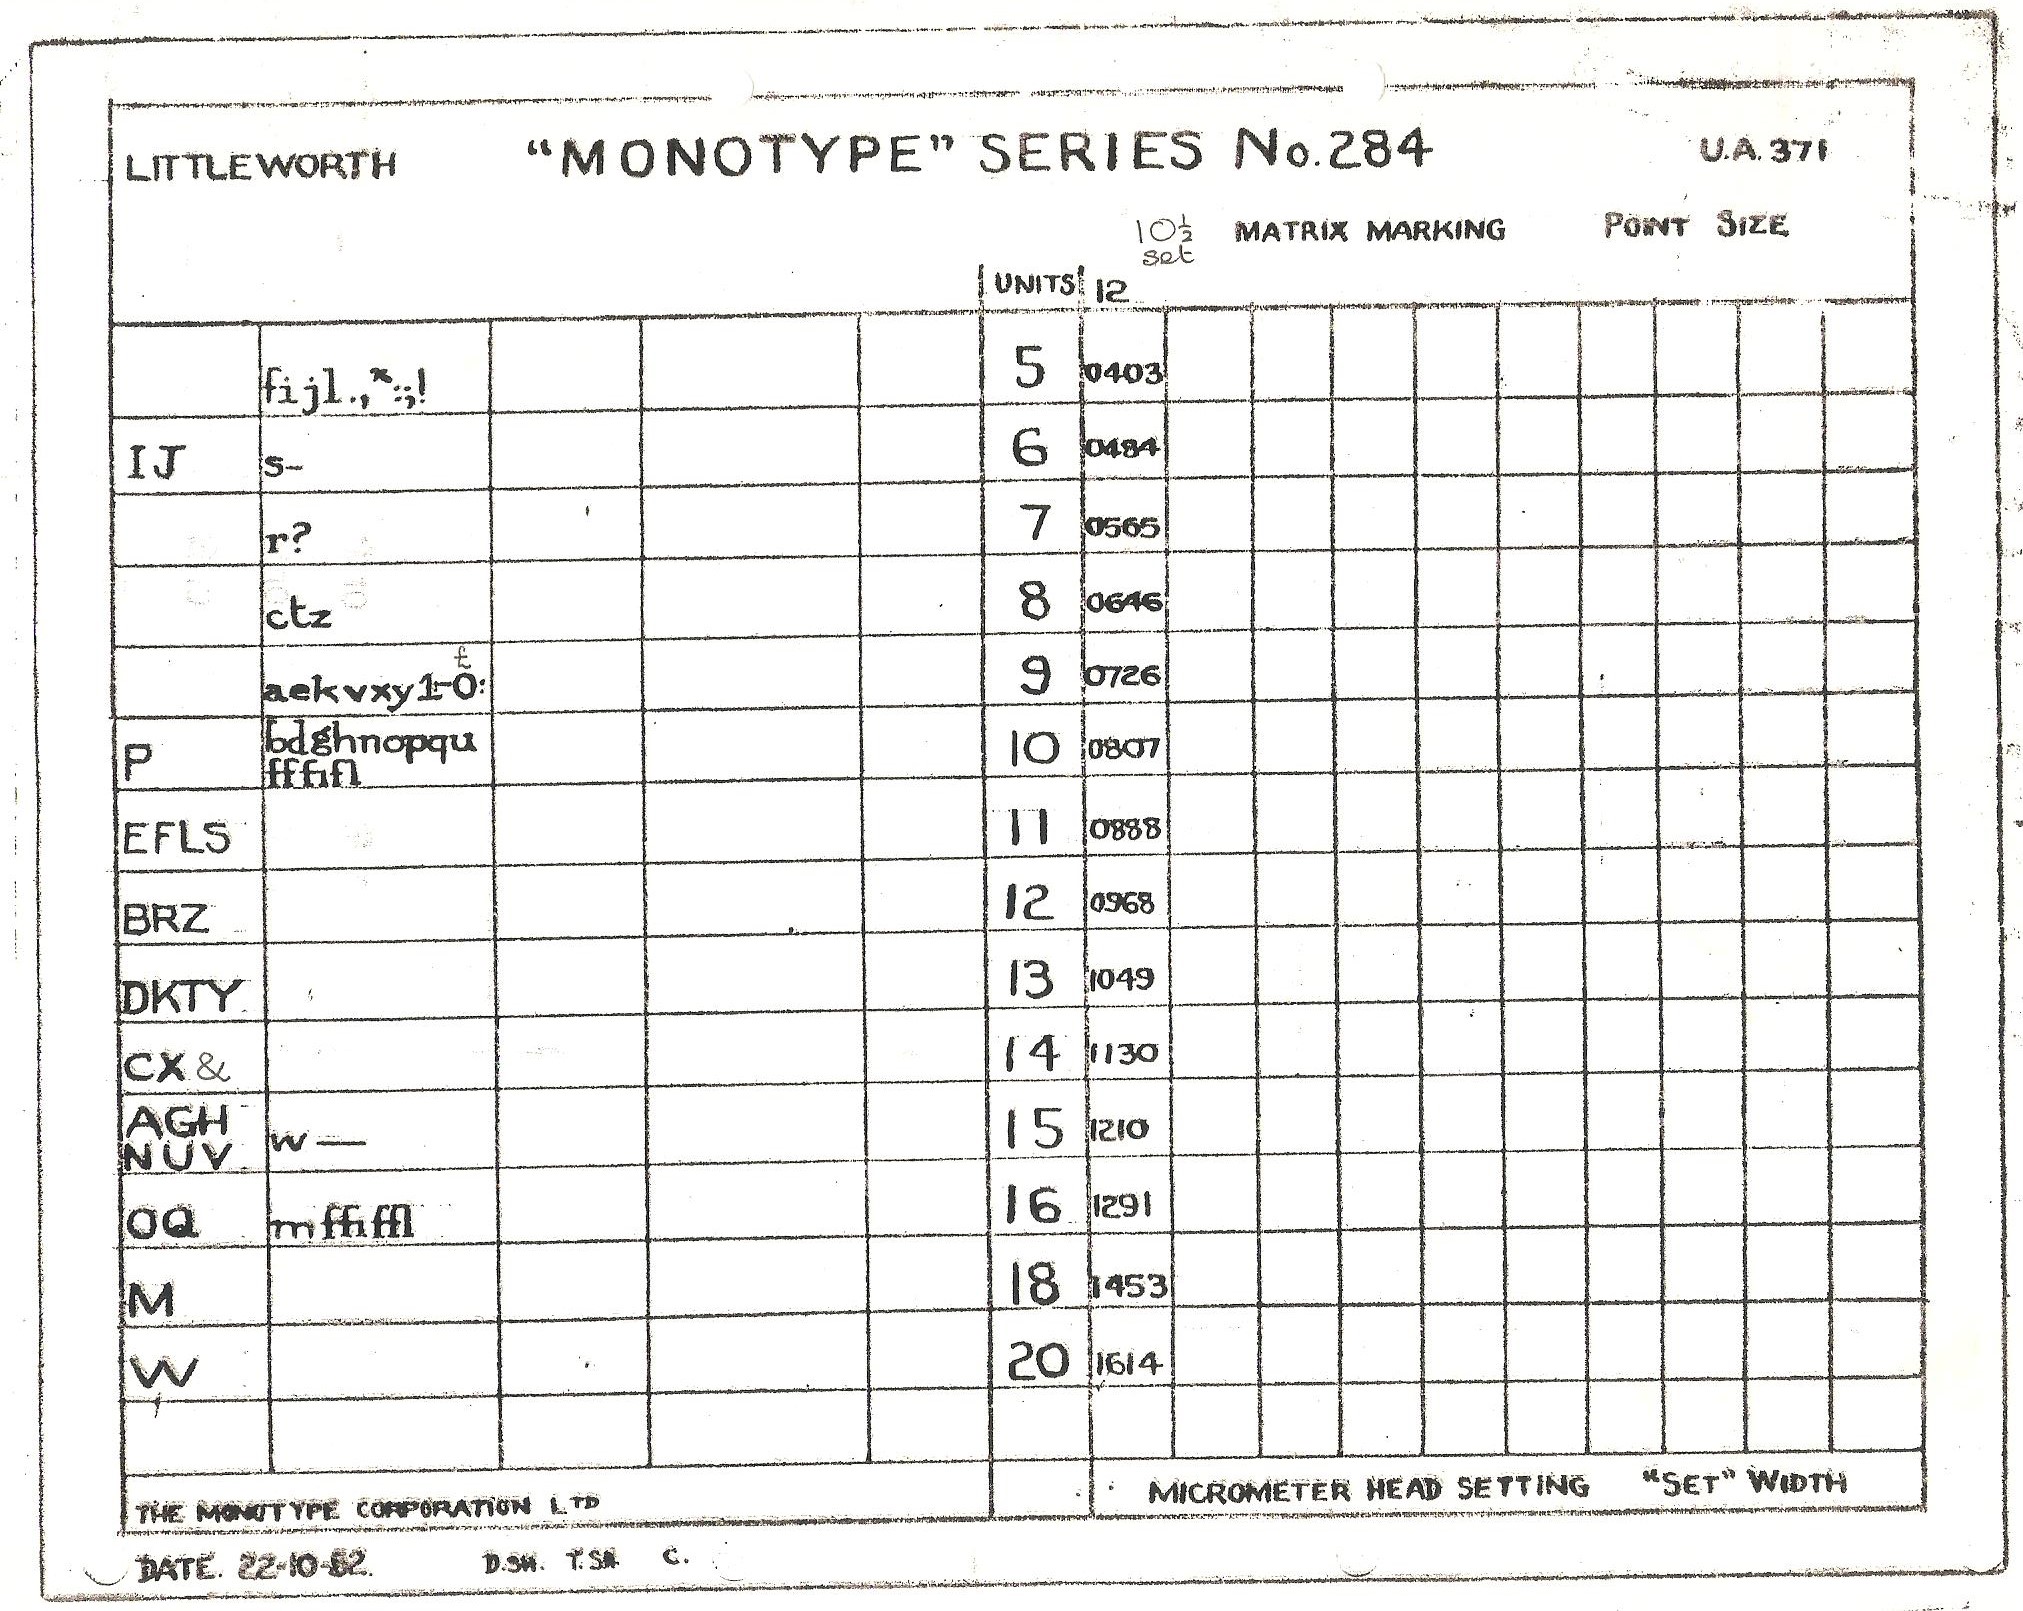 LITTLEWORTH "MONOTYPE" SERIES No. 284 U.A. 371
10½ set MATRIX MARKING POINT SIZE
UNITS 12
fijl.,*:;! 5 0403
IJ s- 6 0484
r? 7 0565
ctz 8 0646
£
aekvxy1-0: 9 0726
P bdghnopqu 10 0807
ff fi fl
EFLS 11 0888
BRZ 12 0968
DKTY 13 1049
CX& 14 1130
AGH
NUV w — 15 1210
OQ m ffi ffl 16 1291
M 18 1453
W 20 1614
MICROMETER HEAD SETTING "SET" WIDTH
THE MONOTYPE CORPORATION LTD
DATE. 22-10-62. D.SH. C.